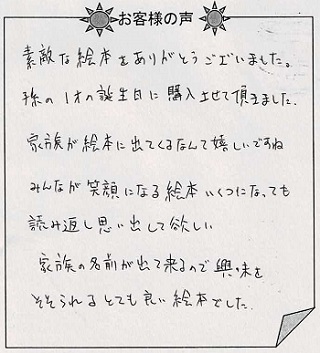 お客様の声
素敵な絵本をありがとうございました。
孫の1才の誕生日に購入させて頂きました.
家族が絵本に出てくるなんて嬉しいですね
みんなが笑顔になる絵本いくつになっても
読み返し思い出して欲しい
家族の名前が出て来るので興味を
そそられるとても良い絵本でした.